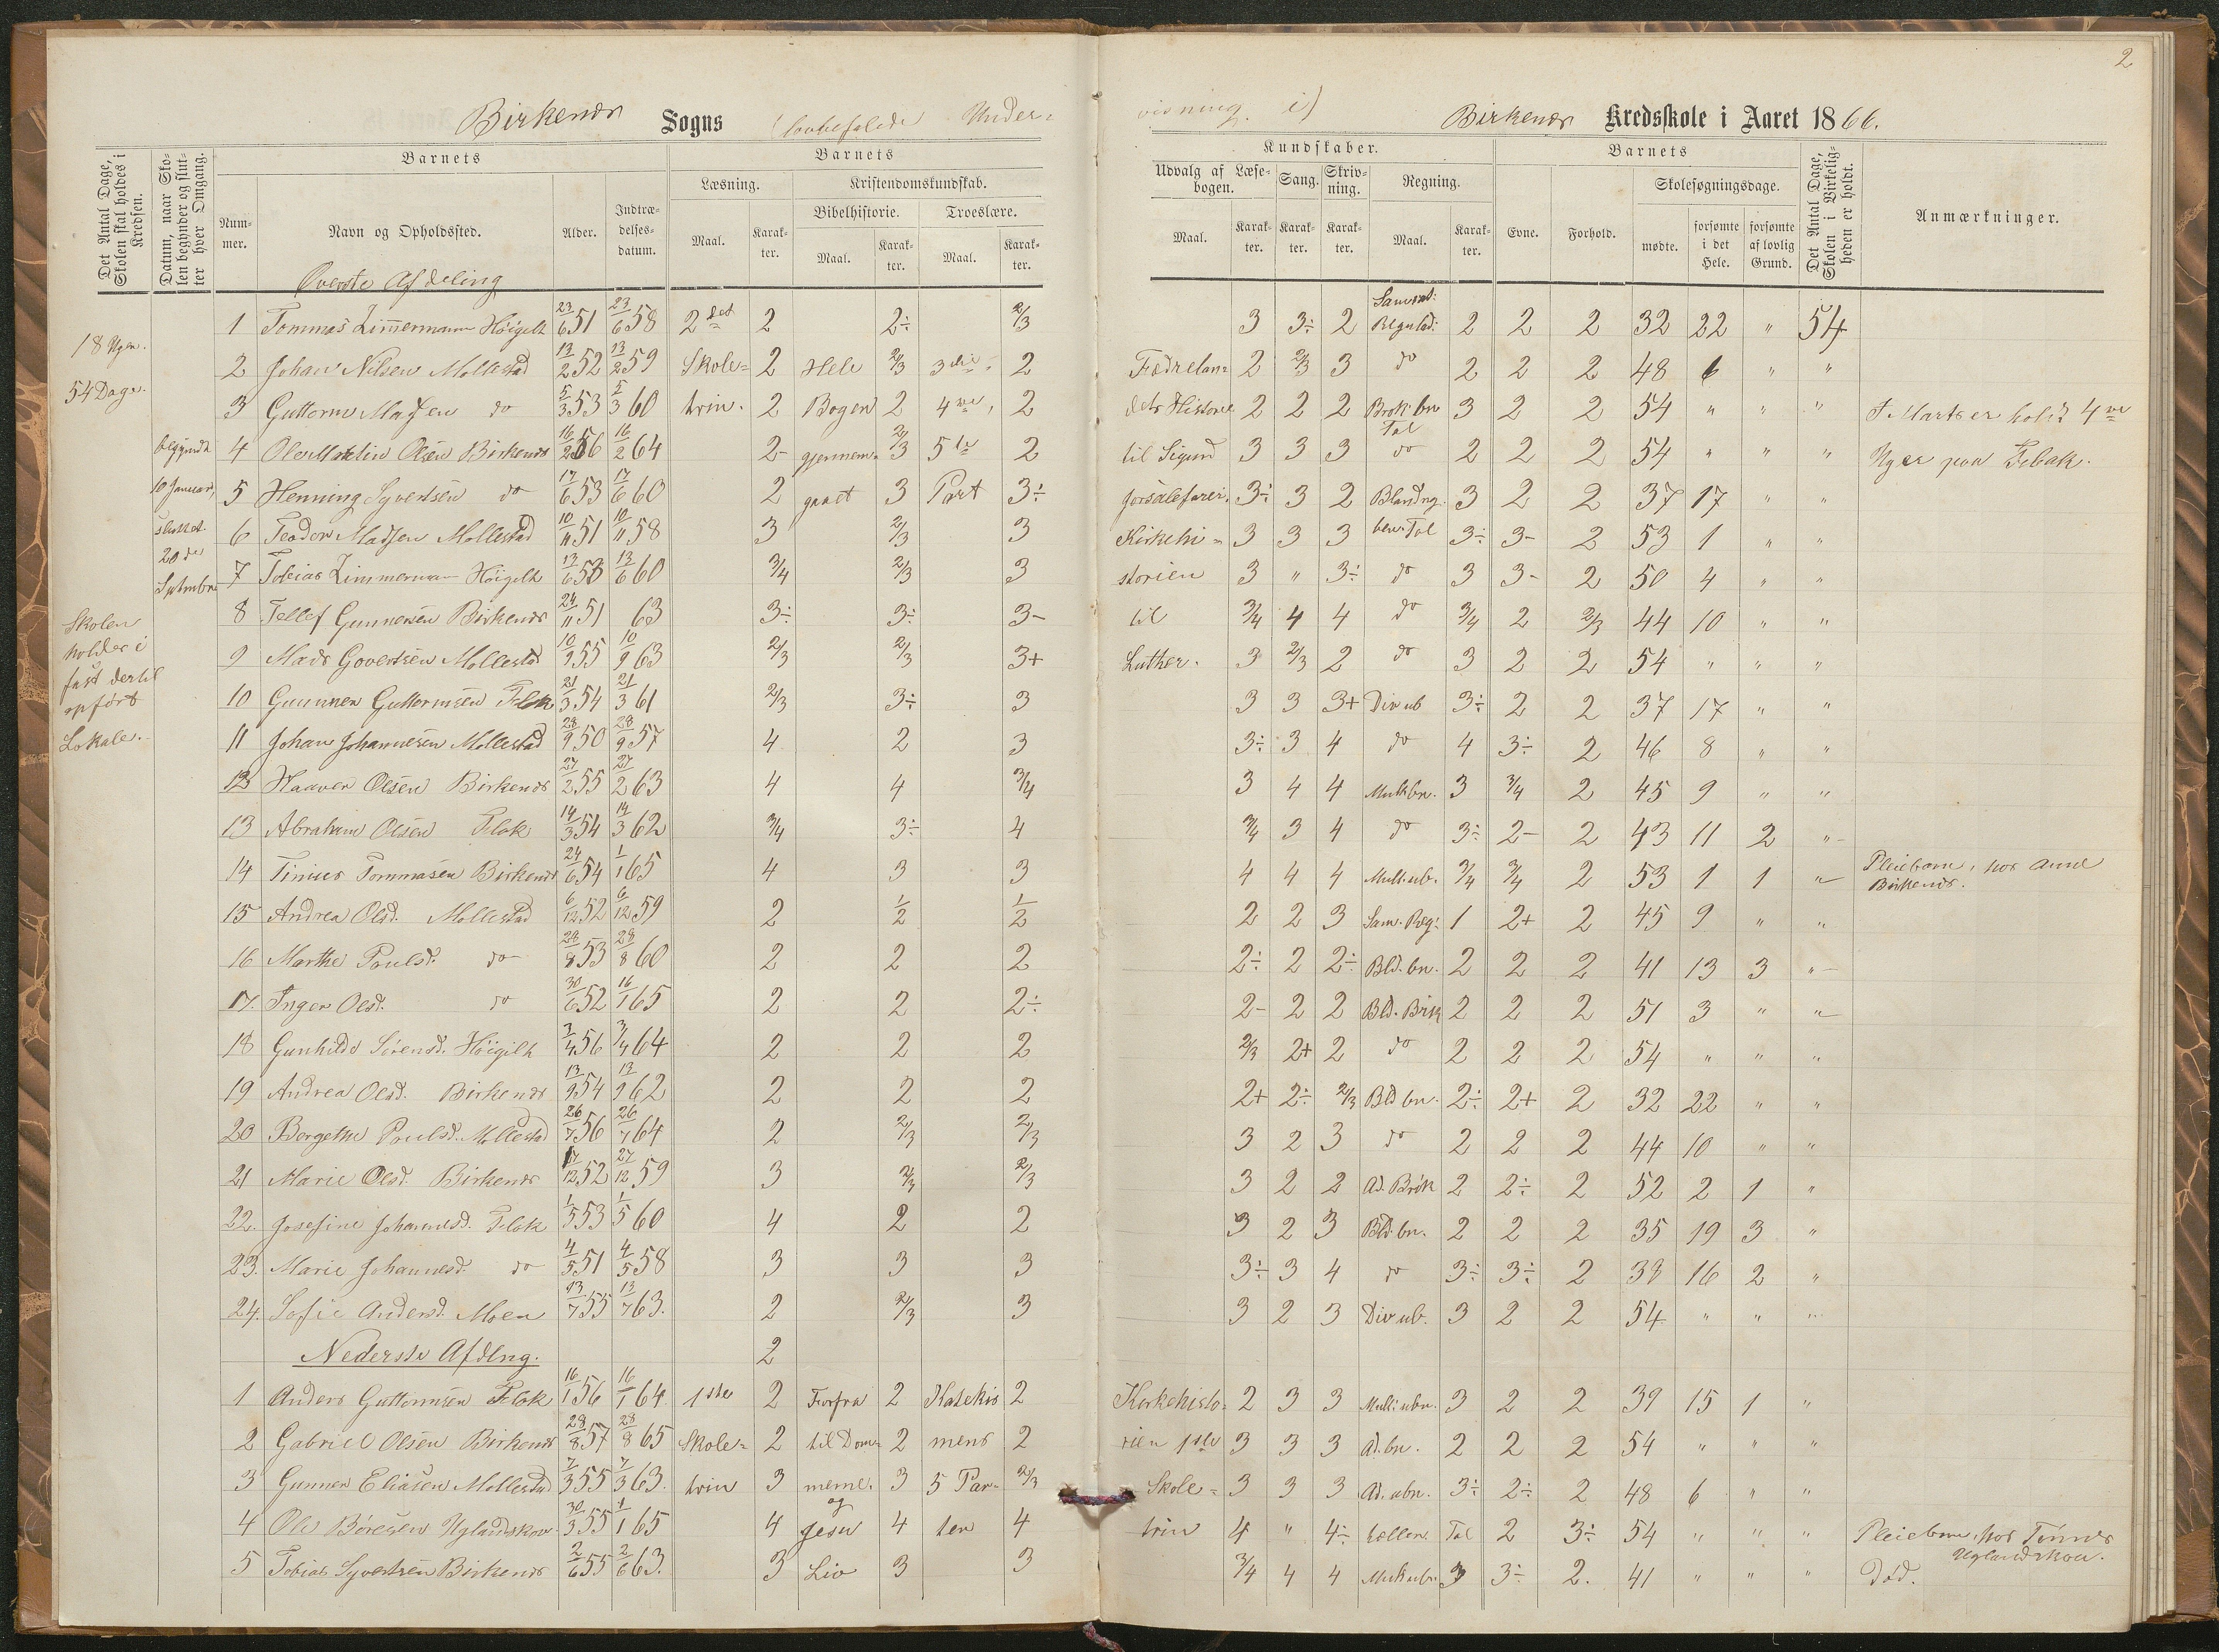 2
Birkenæs Sogns (lovbefalede Under-
visning i) Birkenæs Kredsskole i Aaret 1866.
Det Antal Dage, Skolen skal holdes i Kredsen.
Datum, naar Skolen begynder og slutter hver Omgang.
Barnets
Barnets
Kundskaber.
Barnets
Nummer.
Navn og Opholdssted.
Alder.
Indtrædelsesdatum.
Læsning.
Kristendomskundskab.
Bibelhistorie.
Troeslære.
Maal.
Karakter.
Maal.
Karakter.
Maal.
Karakter.
Udvalg af Læsebogen.
Sang.
Skrivning.
Regning.
Maal.
Karakter.
Karakter.
Karakter.
Maal.
Karakter.
Evne.
Forhold.
Skolesøgningsdage.
mødte.
forsømte i det Hele.
forsømte af lovlig Grund.
Det Antal Dage, Skolen i Virkeligheden er holdt.
Anmærkninger.
Øverste Afdeling
18 Uger.
54 Dage.
begyndt
10 Januar,
sluttet
20de
Septembr.
Skolen
holdes i
fast dertil
opført
Lokale.
1 Tommas Zimmermann Høigilt 23/6 51 23/6 58 2det 2 2÷ 2/3 3 3÷ 2 Samsat: Regulad: 2 2 2 32 22 " 54
2 Johan Nilsen Mollestad 13/2 52 13/2 59 Skole- 2 Hele 2/3 3die 2 Fædrelan- 2 2/3 3 do 2 2 2 48 6 " "
3 Guttorm Madsen do 5/3 53 5/3 60 trin. 2 Bogen 2 4de, 2 dets Historie 2 2 2 Brøk bn 3 2 2 54 " " " I Marts er holdt 4re
4 Ole Martin Olsen Birkenæs 16/2 56 16/2 64 2- gjennem- 2/3 5te 2 til Sigurd 3 3 3 Tal do 2 2 2 54 " " " Uger paa Flbak.
5 Henning Syvertsen do 17/6 53 17/6 60 2 gaaet 3 Part 3÷ Jorsalefarer. 3÷ 3 2 Blandng. 3 2 2 37 17 " "
6 Teodor Madsen Mollestad 10/11 51 10/11 58 3 2/3 3 Kirkehi- 3 3 3 ben. Tal 3÷ 3- 2 53 1 " "
7 Tobias Zimmerman Høigilt 13/6 53 13/6 60 3/4 2/3 3 storien 3 " 3÷ do 3 3- 2 50 4 " "
8 Tellef Gunnersen Birkenæs 24/11 51 63 3÷ 3÷ 3- til 3/4 4 4 do 3/4 2 2/3 44 10 " "
9 Mads Govertsen Mollestad 10/9 55 10/9 63 2/3 2/3 3+ Luther. 3 2/3 2 do 3 2 2 54 " " "
10 Gunner Guttormsen Flak 21/3 54 21/3 61 2/3 3÷ 3 3 3 3+ Div ub 3÷ 2 2 37 17 " "
11 Johan Johannesen Mollestad 28/9 50 28/9 57 4 2 3 3÷ 3 4 do 4 3÷ 2 46 8 " "
12 Haaver Olsen Birkenæs 27/2 55 27/2 63 4 4 3/4 3 4 4 Mult bn. 3 3/4 2 45 9 " "
13 Abraham Olsen Flak 14/3 54 14/3 62 3/4 3÷ 4 3/4 3 4 do 3÷ 2- 2 43 11 2 "
14 Tinius Tommasen Birkenæs 24/6 54 1/1 65 4 3 3 4 4 4 Mult. ub. 3/4 3/4 2 53 1 1 " Pleiebarn, hos Anne Birkenæs.
15 Andrea Olsd. Mollestad 6/12 52 6/12 59 2 1/2 1/2 2 2 3 Sam. Reg: 1 2+ 2 45 9 " "
16 Marthe Poulsd. do 28/8 53 28/8 60 2 2 2 2÷ 2 2÷ Bld. bn. 2 2 2 41 13 3 "
17. Inger Olsd. do 30/6 52 16/1 65 2 2 2÷ 2- 2 2 Bld. Brøk 2 2 2 51 3 " "
18 Gunhilde Sørensd. Høigilt 3/4 56 3/4 64 2 2 2 2/3 2+ 2 do 2 2 2 54 " " "
19 Andrea Olsd. Birkenæs 13/9 54 13/9 62 2 2 2 2+ 2÷ 2/3 Bld bn. 2÷ 2+ 2 32 22 " "
20 Bergethe Poulsd. Mollestad 26/7 56 26/7 64 2 2/3 2/3 3 2 3 do 2 2 2 44 10 " "
21 Marie Olsd. Birkenæs 27/12 52 27/12 59 3 2/3 2/3 3 2 2 Ad. Brøk 2 2÷ 2 52 2 1 "
22. Josefine Johannesd. Flak 1/5 53 1/5 60 4 2 2 3 2 3 Bld bn. 2 2 2 35 19 3 "
23. Marie Johannesd. do 4/5 51 4/5 58 3 3 3 3÷ 3 4 do 3÷ 3÷ 2 38 16 2 "
24. Sofie Andersd. Moen 13/7 55 13/7 63. 2 2/3 3 3 2 3 Div ub. 3 2 2 54 " " "
Nederste Afdlng. 2
1 Anders Guttormsen Flak 16/1 56 16/1 64 1ste 2 Forfra 2 Katekis 2 Kirkehisto- 2 3 3 Mult: ubn. 3 2 2 39 15 1 "
2 Gabriel Olsen Birkenæs 28/8 57 28/8 65 Skole- 2 til Dom- 2 mens 2 rien 1ste 3 3 3 Ad. bn. 2 2 2 54 " " "
3 Gunner Eliasen Mollestad 7/3 55 7/3 63. trin 3 mene. 3 5 Par- 2/3 Skole- 3 3 3 Ad. ubn. 3÷ 2÷ 2 48 6 " "
4 Ole Børesen Uglandskou 30/3 55 1/1 65 4 og Jesu 4 ter 4 trin 4 " 4÷ hellen. Tal 2 3÷ 54 " " " Pleiebarn, hos Tønnes Uglandskou.
5 Tobias Syvertsen Birkenæs 2/6 55 2/6 63. 3 Liv 3 3 3/4 4 4 Mult ubn. 3 3÷ 2. 41 " " " Død.